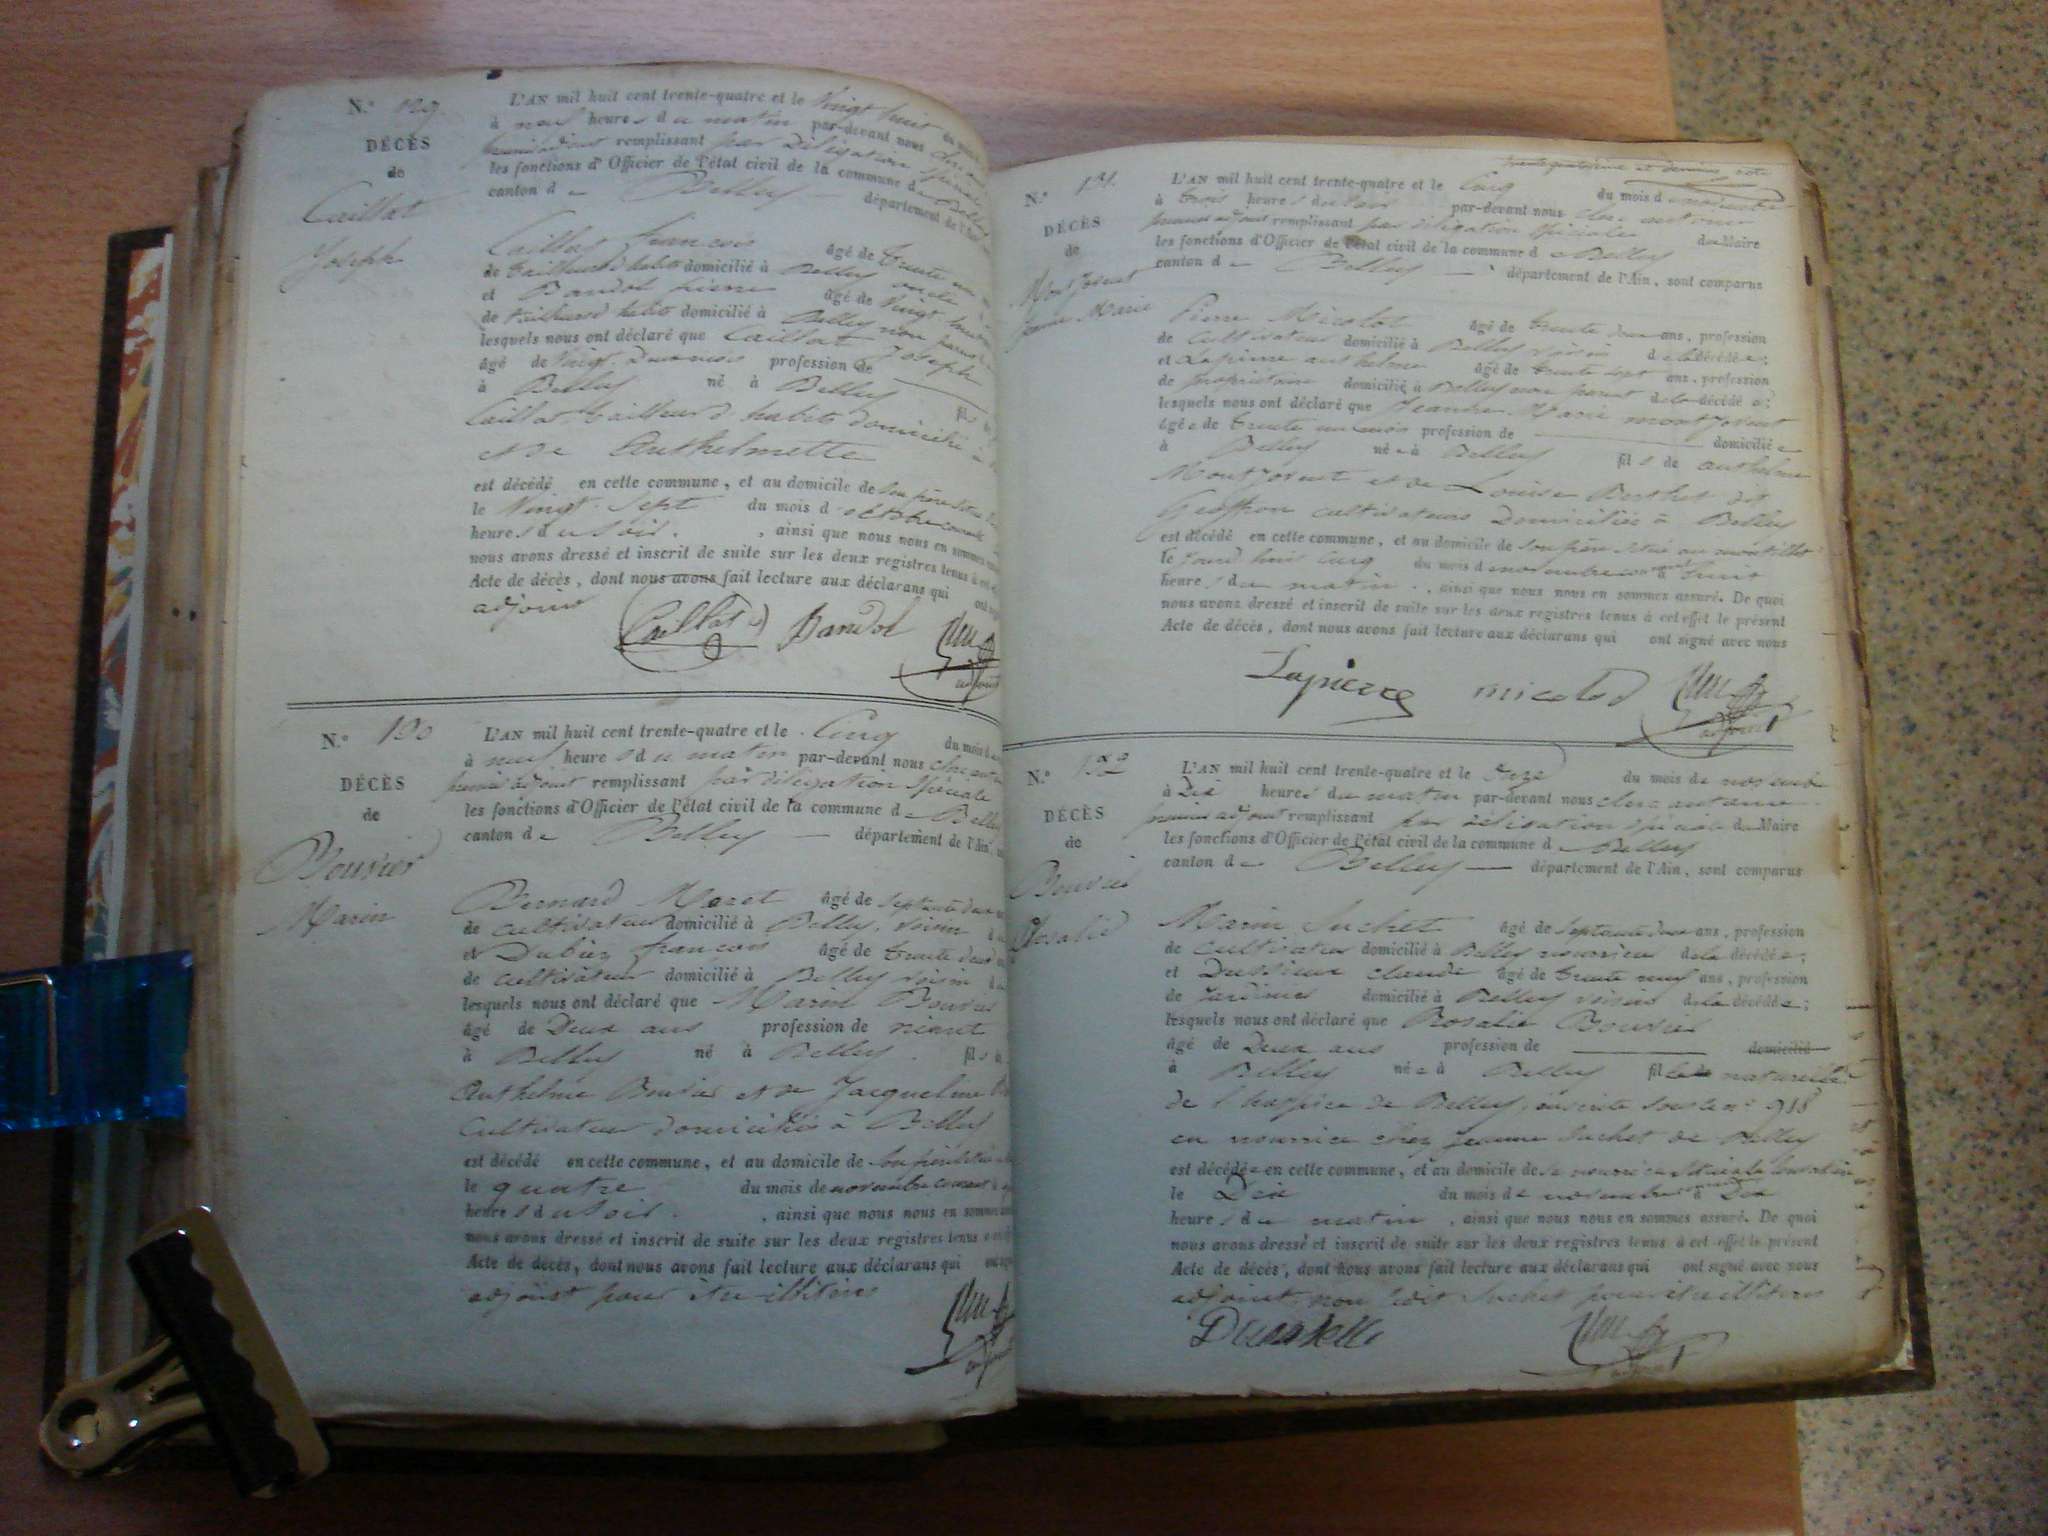 N.º 129
DÉCÈS
de
Caillat
Joseph
L'AN mil huit cent trente-quatre et le Vingt huit
à neuf heures du matin par-devant nous
remplissant par délégation spéciale
les fonctions d'Officier de l'état civil de la commune de Belley
canton de Belley département de l'Ain
Caillat françois âgé de trente
de tailleur d'habits domicilié à Belley oncle
et Bandol pierre âgé de Vingt huit
de tailleur d'habits domicilié à Belley non parent
lesquels nous ont déclaré que Caillat Joseph
âgé de Vingt deux mois profession de
à Belley né à Belley fils
Caillat tailleur d'habits domicilié à
et de Anthelmette
est décédé en cette commune, et au domicile de son père
le Vingt Sept du mois d'octobre courant
heures du soir. , ainsi que nous nous en sommes
nous avons dressé et inscrit de suite sur les deux registres tenus à cet
Acte de décès, dont nous avons fait lecture aux déclarans qui ont
adjoint
Caillat Bandol
adjoint
N.º 130
DÉCÈS
de
Bouvier
Marin
L'AN mil huit cent trente-quatre et le Cinq du mois de
à neuf heures du matin par-devant nous
premier adjoint remplissant par délégation spéciale
les fonctions d'Officier de l'état civil de la commune de Belley
canton de Belley département de l'Ain
Bernard Moret âgé de septante deux
de cultivateur domicilié à Belley, voisin
et Dubiez françois âgé de trente deux
de cultivateur domicilié à Belley voisin
lesquels nous ont déclaré que Marin Bouvier
âgé de Deux ans profession de
à Belley né à Belley. fils de
Anthelme Bouvier et de Jacqueline
Cultivateurs domiciliés à Belley
est décédé en cette commune, et au domicile de son père
le quatre du mois de novembre courant à
heures du soir. , ainsi que nous nous en sommes
nous avons dressé et inscrit de suite sur les deux registres tenus
Acte de décès, dont nous avons fait lecture aux déclarans qui
adjoint pour être illitérés
trente quatrieme et dernier
N.º 131
DÉCÈS
de
Montjovent
Jeanne Marie
L'AN mil huit cent trente-quatre et le Cinq du mois de novembre
à trois heures du soir par-devant nous clerc antoine
premier adjoint remplissant par délégation spéciale du Maire
les fonctions d'Officier de l'état civil de la commune de Belley
canton de Belley département de l'Ain, sont comparus
Pierre Micolod âgé de trente deux ans, profession
de Cultivateur domicilié à Belley voisin de la décédée;
et Lapierre anthelme âgé de trente sept ans, profession
de propriétaire domicilié à Belley non parent de la décédée;
lesquels nous ont déclaré que Jeanne Marie montjovent
âgée de trente un mois profession de domiciliée
à Belley née à Belley fille de anthelme
Montjovent et de Louise Berthet dit
Geoffron cultivateurs Domiciliés à Belley
est décédé en cette commune, et au domicile de son père situé au
le jourd'hui Cinq du mois de novembre courant à huit
heures du matin. , ainsi que nous nous en sommes assuré. De quoi
nous avons dressé et inscrit de suite sur les deux registres tenus à cet effet le présent
Acte de décès, dont nous avons fait lecture aux déclarans qui ont signé avec nous
Lapierre micolod
adjoint
N.º 132
DÉCÈS
de
Bouvier
Rosalie
L'AN mil huit cent trente-quatre et le Onze du mois de novembre
à Dix heures du matin par-devant nous clerc antoine
premier adjoint remplissant par délégation spéciale du Maire
les fonctions d'Officier de l'état civil de la commune de Belley
canton de Belley département de l'Ain, sont comparus
Marin Suchet âgé de septante deux ans, profession
de Cultivateur domicilié à Belley nourricier de la décédée;
et Dussieux claude âgé de trente neuf ans, profession
de Jardinier domicilié à Belley voisin de la décédée;
lesquels nous ont déclaré que Rosalie Bouvier
âgé de Deux ans profession de domicilié
à Belley née à Belley fille naturelle
de l'hospice de Belley, inscrite sous le nº 918
en nourrice chez Jeanne Suchet de Belley
est décédée en cette commune, et au domicile de sa nourrice
le Dix du mois de novembre courant à Dix
heures du matin , ainsi que nous nous en sommes assuré. De quoi
nous avons dressé et inscrit de suite sur les deux registres tenus à cet effet le présent
Acte de décès, dont nous avons fait lecture aux déclarans qui ont signé avec nous
adjoint, non ledit Suchet pour être illitéré